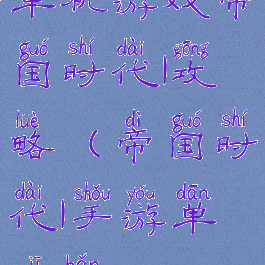 单机游戏帝
guó shí dài gōng
国时代|攻
lüè dì guó shí
略(帝国时
dài shǒu yóu dān
代|手游单